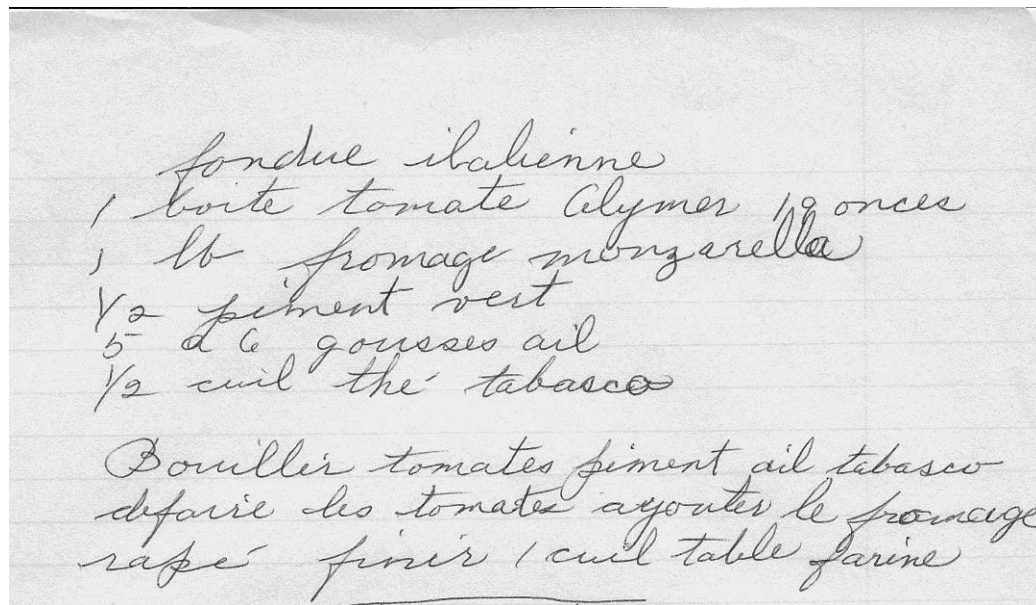 fondue italienne
1 boite tomate Alymer 19 onces
1 lb fromage monzarella
1/2 piment vert
5 a 6 gousses ail
1/2 cuil thé tabasco
Bouillir tomates piment ail tabasco
defaire les tomates ajouter le fromage
rapé finir 1 cuil table farine